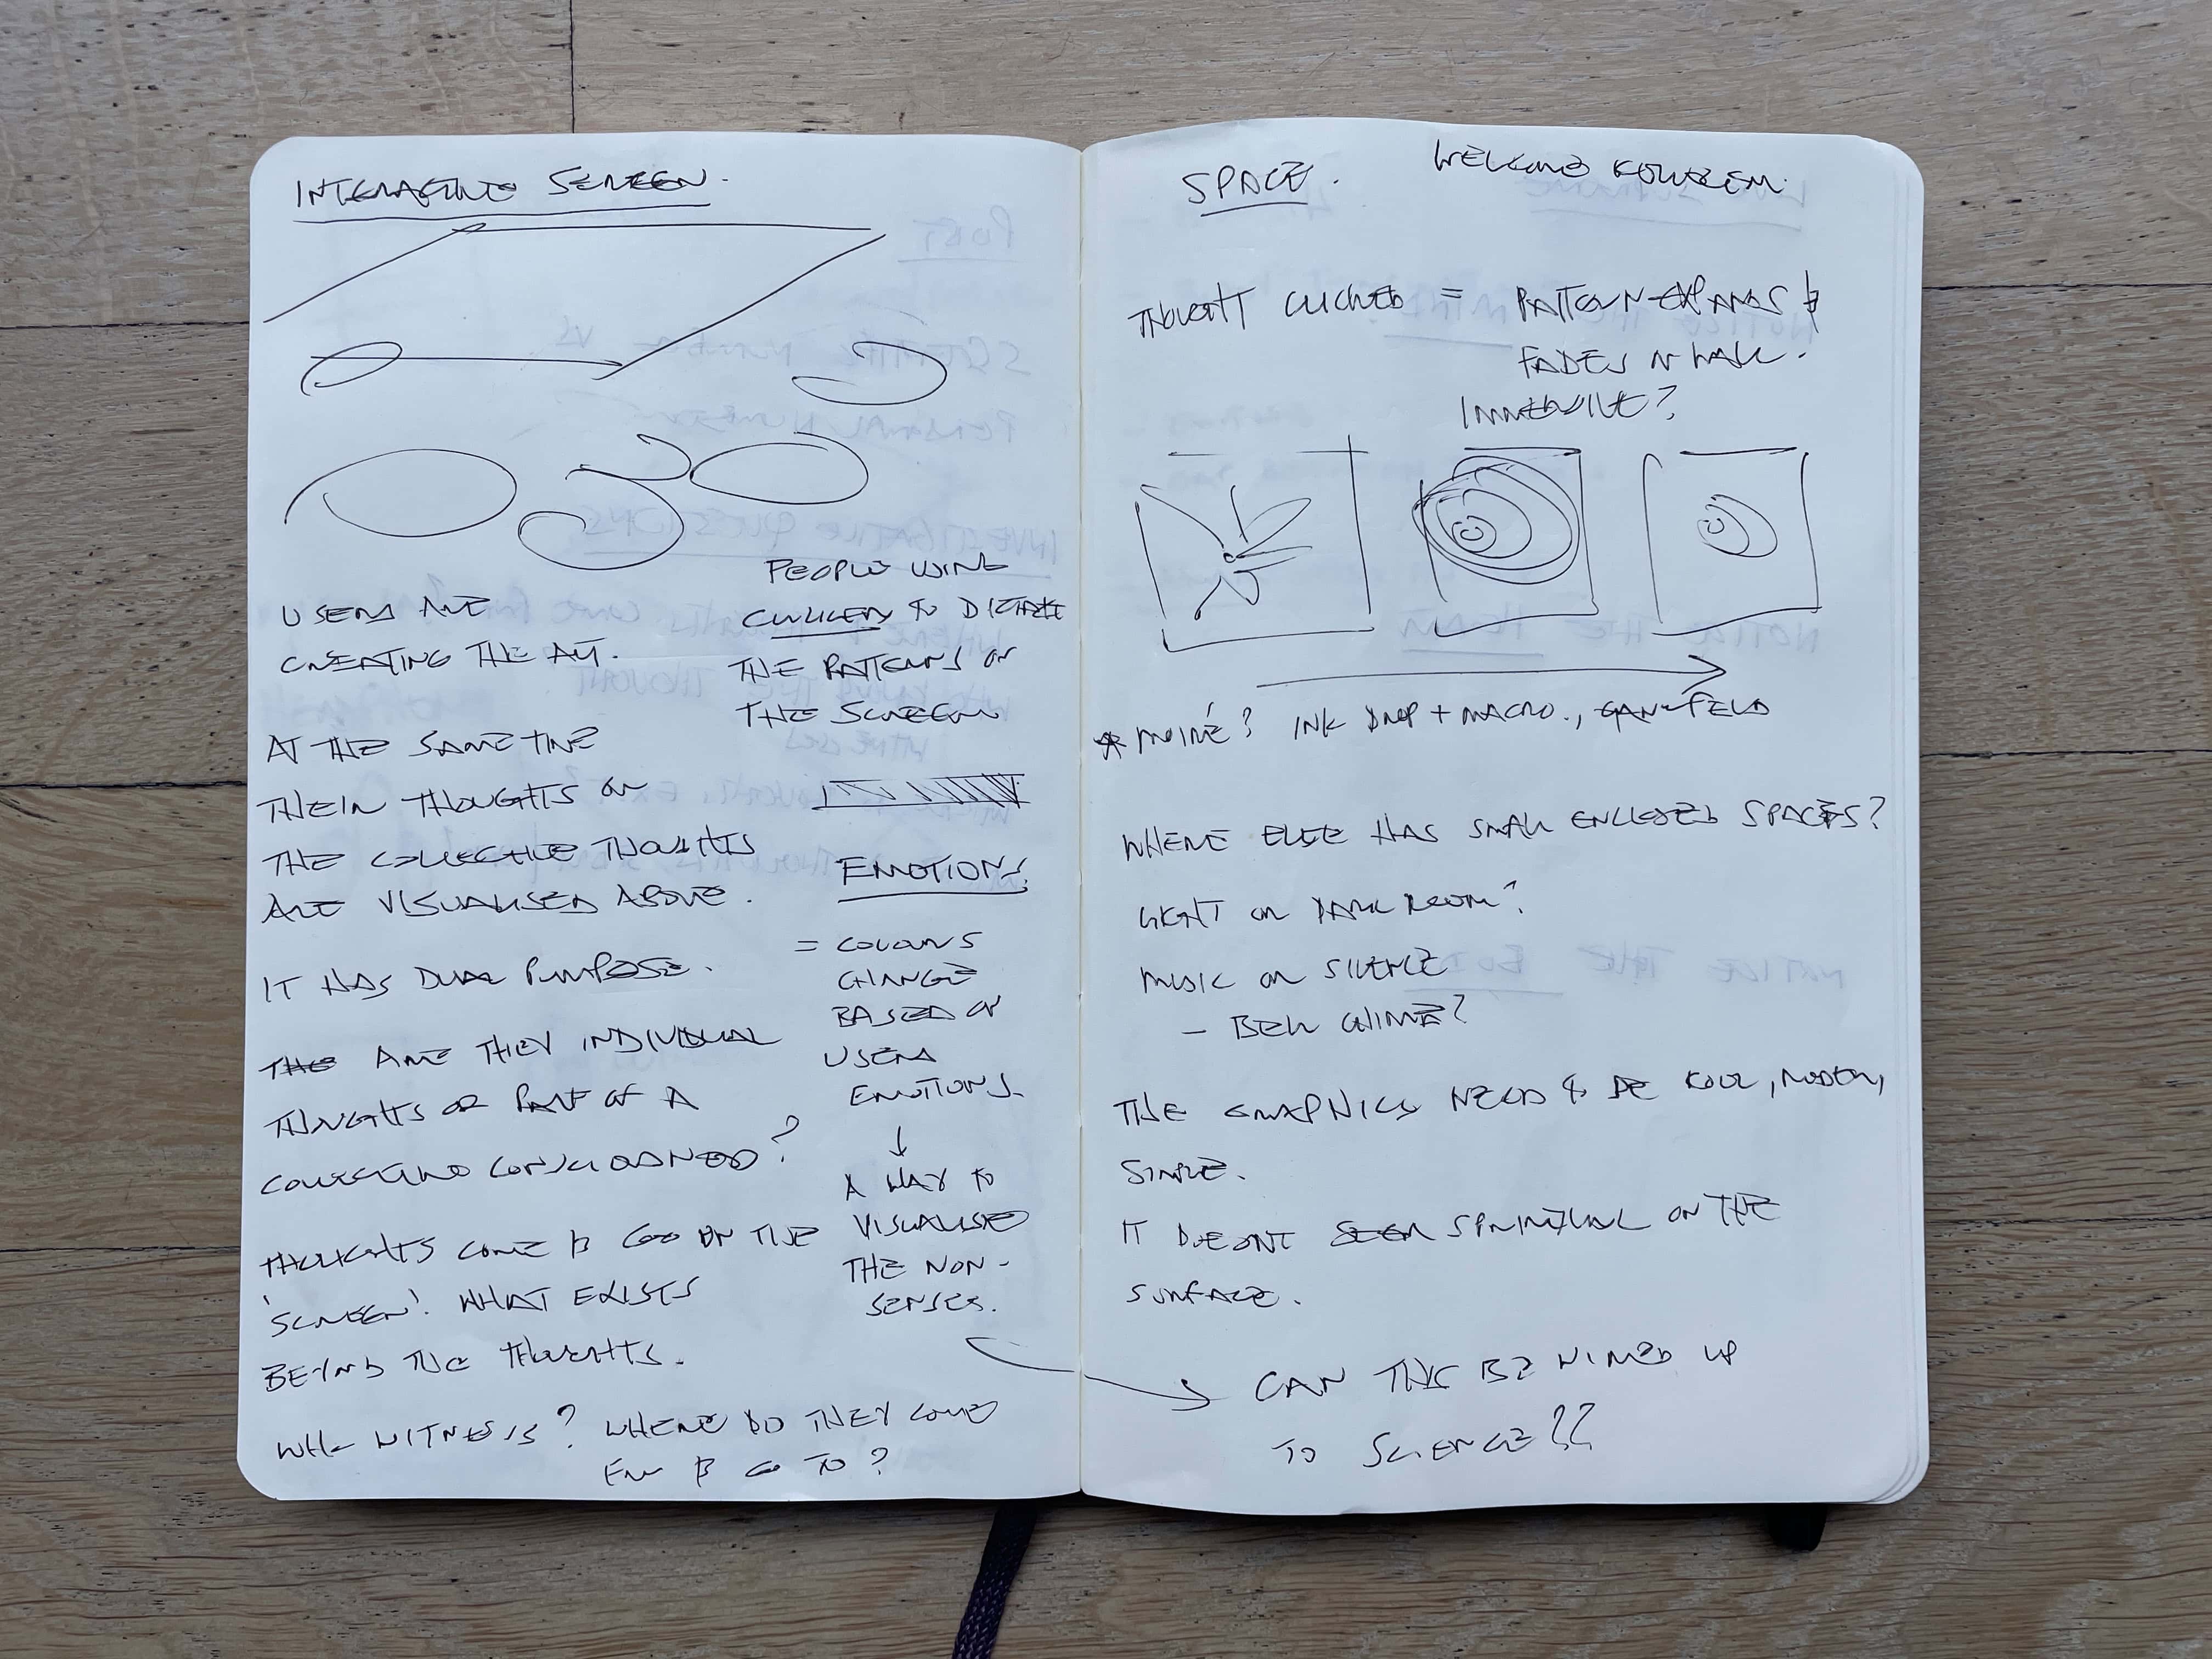 INTERACTIVE SCREEN.
USERS ARE
CREATING THE ART.
AT THE SAME TIME
THEIR THOUGHTS OR
THE COLLECTIVE THOUGHTS
ARE VISUALISED ABOVE.
IT HAS DUAL PURPOSE.
ARE THEY INDIVIDUAL
THOUGHTS OR PART OF A
COLLECTIVE CONSCIOUSNESS?
THOUGHTS COME & GO ON THE
'SCREEN'. WHAT EXISTS
BEHIND THE THOUGHTS.
WHO WITNESS? WHERE DO THEY COME
FROM & GO TO?
PEOPLE USING
CLICKERS TO DICTATE
THE PATTERNS ON
THE SCREEN
EMOTIONS.
= COLOURS
CHANGE
BASED ON
USERS
EMOTIONS.
↓
A WAY TO
VISUALISE
THE NON-
SENSES.
SPACE.
WELCOME
THOUGHT CLICKED = PATTERN EXPANDS &
FADES ON WALL.
IMMERSIVE?
* MOIRÉ? INK DROP + MACRO., GANZFELD
WHERE ELSE HAS SMALL ENCLOSED SPACES?
LIGHT OR DARK ROOM?
MUSIC OR SILENCE
- BELL CHIME?
THE GRAPHICS NEED TO BE KOOL, MODERN,
SIMPLE.
IT DOESNT SEEM SPIRITUAL ON THE
SURFACE.
CAN THIS BE WIRED UP
TO SCIENCE??